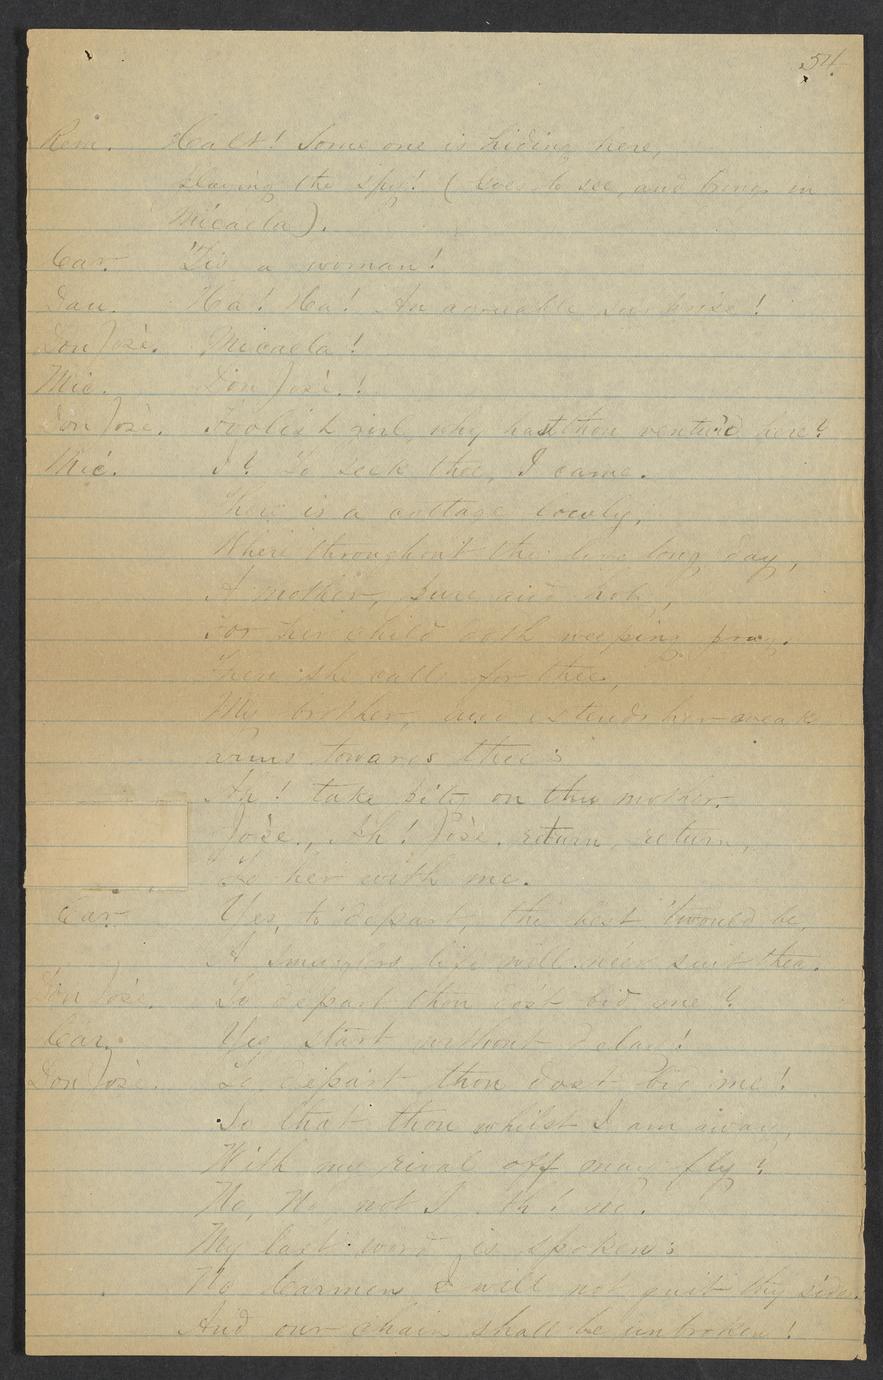 54.
Rem. Halt! Some one is hiding here,
playing the spy! (Goes to see, and brings in
Micaela).
Car. 'Tis a woman!
Dan. Ha! Ha! An agreeable surprise!
Don José. Micaela!
Mic. Don José!
Don José. Foolish girl, why hast thou ventur'd here?
Mic. I? To seek thee, I came.
There is a cottage lowly,
Where throughout the live long day,
A mother, pure and holy,
For her child doth weeping pray.
There she calls for thee,
My brother, and extends her weak
arms towards thee;
Ah! take pity on thy mother.
José, Ah! José. return, return,
To her with me.
Car. Yes, to depart, the best 'twould be,
A smuglers life will ne'er suit thee.
Don José. To depart thou dost bid me?
Car. Yes, start without delay!
Don José. To depart thou dost bid me!
So that thou whilst I am away,
With my rival off may fly?
No, No, not I. Ah! no.
My last word is spoken;
No Carmen I will not quit thy side.
And our chain shall be unbroken!